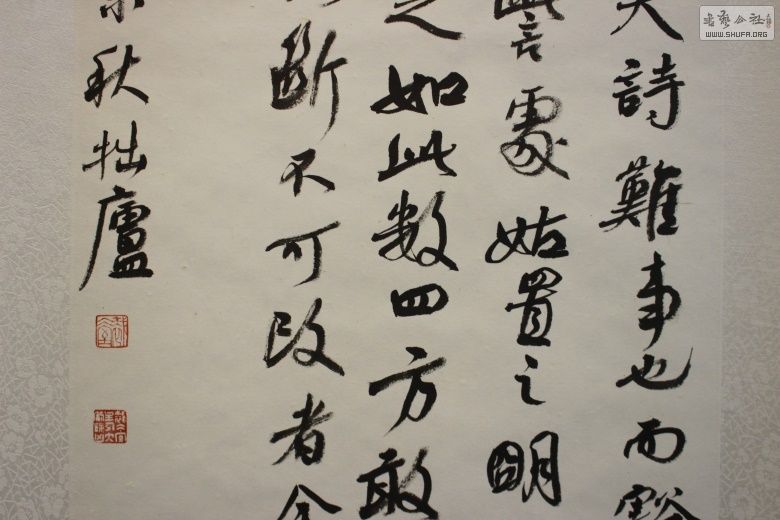 詩難事也而
處姑置之明
如此数四方敢
斷不可改者
秋拙廬
書藝公社
WWW.SHUFA.ORG